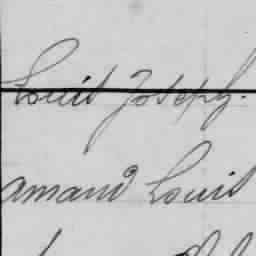 Louis Joseph.
Amand Louis